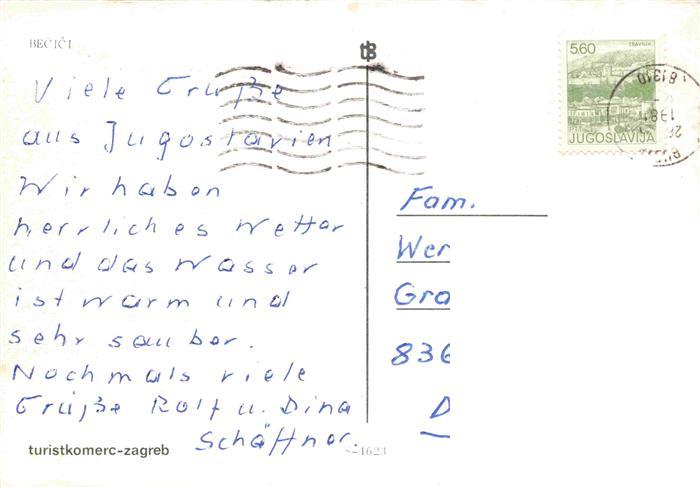 BEČIĆI
Viele Grüße
aus Jugoslavien
Wir haben
herrliches Wetter
und das Wasser
ist warm und
sehr sauber.
Nochmals viele
Grüße Rolf u. Dina
Schäffner.
turistkomerc-zagreb
S-4623
5,60 TRAVNIK
JUGOSLAVIJA
81310
1981
Fam.
Wer
Gra
836
D